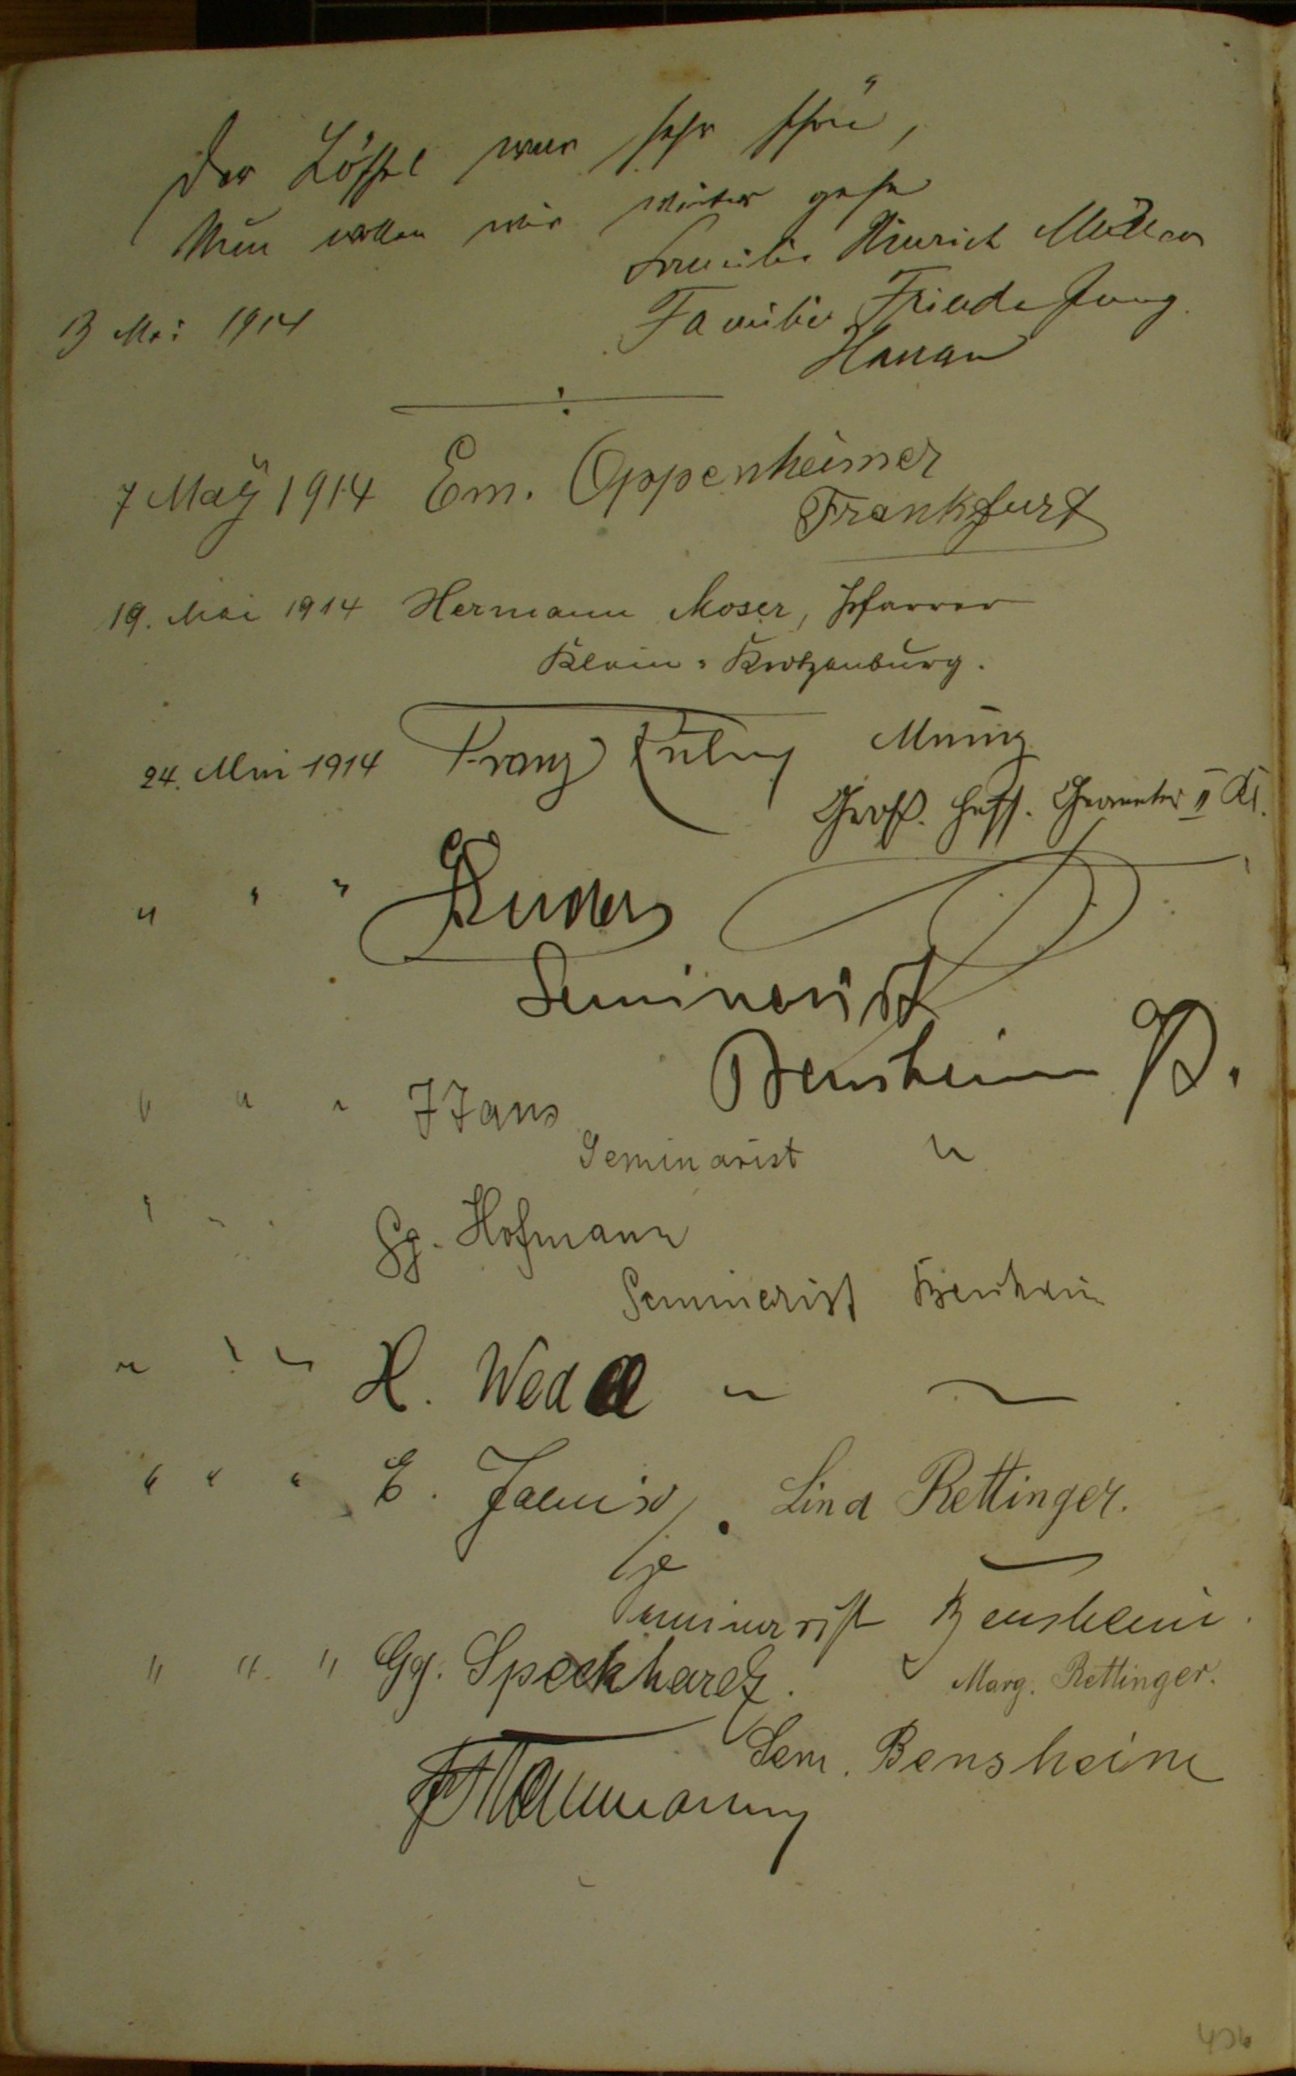 Der Löffel war sehr schön,
Nun wollen wir weiter gehn
Familie Hinrich Müller
13 Mai 1914 Familie Frieda Jung
Hanau
7 Maÿ 1914 Em. Oppenheimer
Frankfurt
19. Mai 1914 Hermann Moser, Pfarrer
Klein-Krotzenburg.
24. Mai 1914 Franz Mainz
Groß. Hess. Geometer II Kl.
" " "
Seminarist
Bensheim
" " "
Seminarist "
" " " Gg. Hofmann
Seminarist Bensheim
" " " H. " "
" " " E. Lina Rettinger.
Seminarist Bensheim.
" " " Gg. Speckhardt. Marg. Rettinger.
Sem. Bensheim